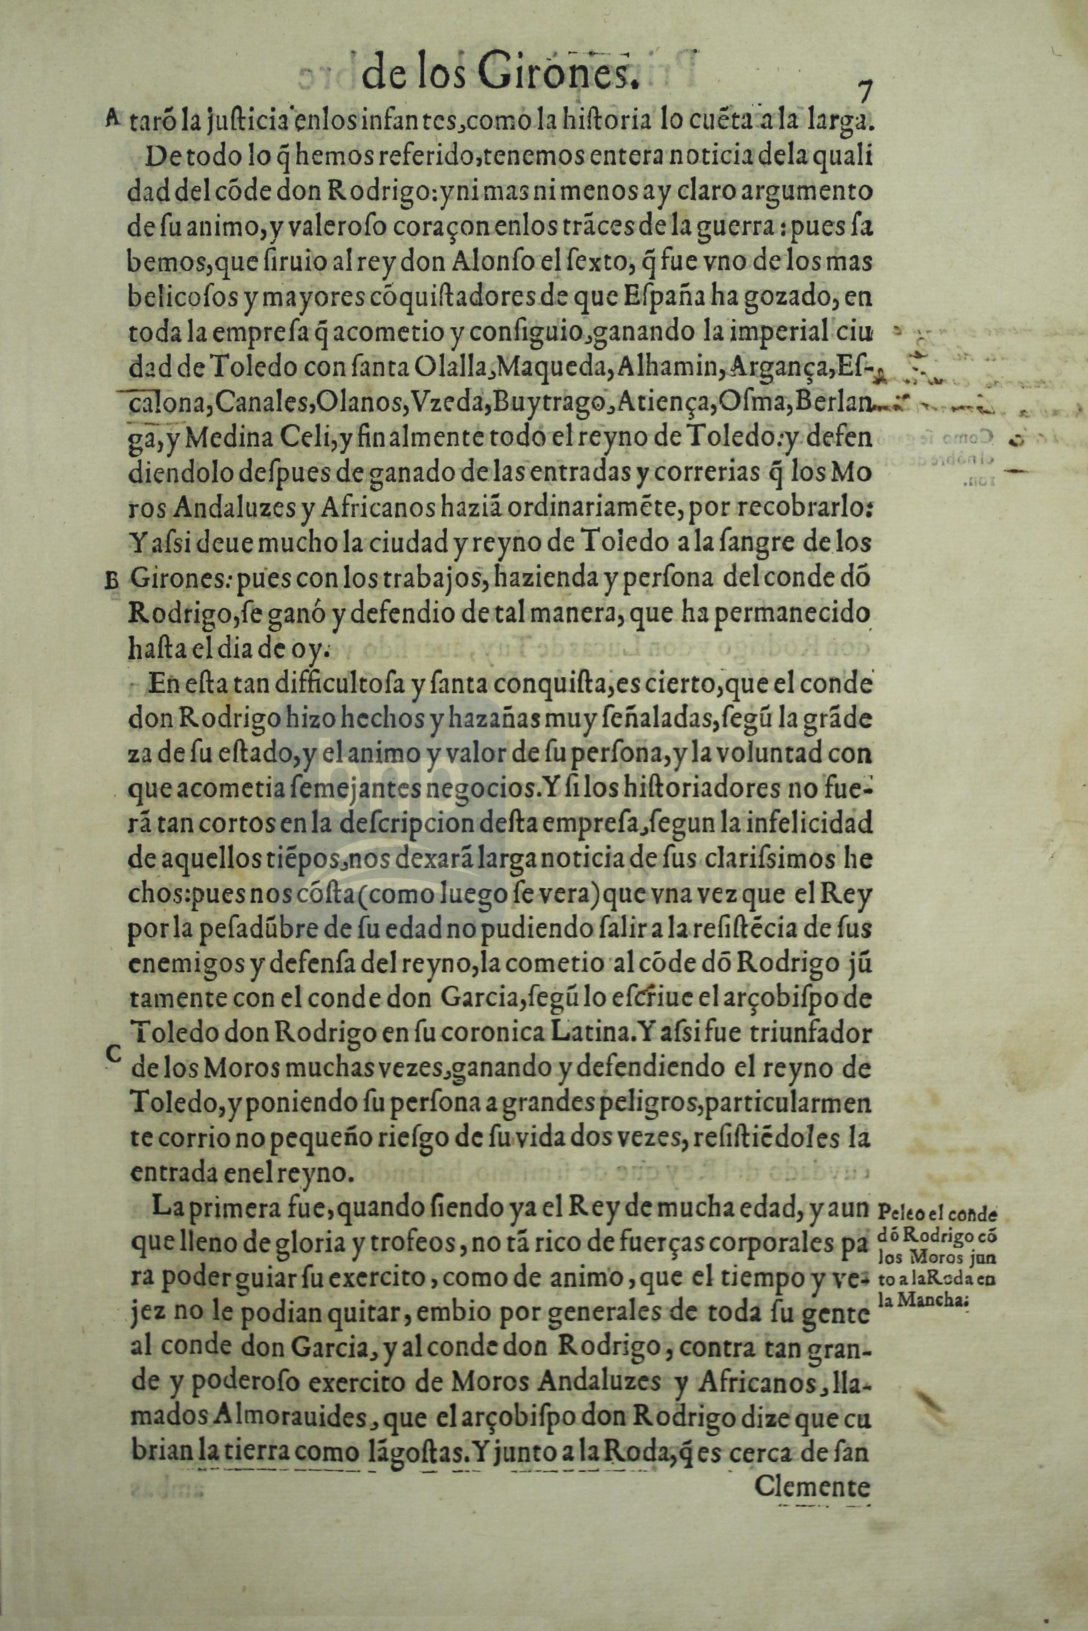 de los Girones.
7
A tarõ la justicia enlos infantes, como la historia lo cuẽta a la larga.
De todo lo q̃ hemos referido, tenemos entera noticia dela quali
dad del cõde don Rodrigo: y ni mas ni menos ay claro argumento
de ſu animo, y valeroſo coraçon enlos trãces de la guerra: pues ſa
bemos, que ſiruio al rey don Alonſo el ſexto, q̃ fue vno de los mas
belicoſos y mayores cõquiſtadores de que Eſpaña ha gozado, en
toda la empreſa q̃ acometio y conſiguio, ganando la imperial ciu
dad de Toledo con ſanta Olalla, Maqueda, Alhamin, Argança, Eſ-
calona, Canales, Olanos, Vzeda, Buytrago, Atiença, Oſma, Berlan
ga, y Medina Celi, y finalmente todo el reyno de Toledo: y defen
diendolo deſpues de ganado de las entradas y correrias q̃ los Mo
ros Andaluzes y Africanos haziã ordinariamẽte, por recobrarlo:
Y aſsi deue mucho la ciudad y reyno de Toledo a la ſangre de los
B Girones: pues con los trabajos, hazienda y perſona del conde dõ
Rodrigo, ſe ganó y defendio de tal manera, que ha permanecido
haſta el dia de oy.
En eſta tan difficultoſa y ſanta conquiſta, es cierto, que el conde
don Rodrigo hizo hechos y hazañas muy ſeñaladas, ſegũ la grãde
za de ſu eſtado, y el animo y valor de ſu perſona, y la voluntad con
que acometia ſemejantes negocios. Y ſi los hiſtoriadores no fue-
rã tan cortos en la deſcripcion deſta empreſa, ſegun la infelicidad
de aquellos tiẽpos, nos dexarã larga noticia de ſus clariſsimos he
chos: pues nos cõſta (como luego ſe vera) que vna vez que el Rey
por la peſadũbre de ſu edad no pudiendo ſalir a la reſiſtẽcia de ſus
enemigos y defenſa del reyno, la cometio al cõde dõ Rodrigo jũ
tamente con el conde don Garcia, ſegũ lo eſcriue el arçobiſpo de
Toledo don Rodrigo en ſu coronica Latina. Y aſsi fue triunfador
C de los Moros muchas vezes, ganando y defendiendo el reyno de
Toledo, y poniendo ſu perſona a grandes peligros, particularmen
te corrio no pequeño rieſgo de ſu vida dos vezes, reſiſtiẽdoles la
entrada enel reyno.
La primera fue, quando ſiendo ya el Rey de mucha edad, y aun
que lleno de gloria y trofeos, no tã rico de fuerças corporales pa
ra poder guiar ſu exercito, como de animo, que el tiempo y ve-
jez no le podian quitar, embio por generales de toda ſu gente
al conde don Garcia, y al conde don Rodrigo, contra tan gran-
de y poderoſo exercito de Moros Andaluzes y Africanos, lla-
mados Almorauides, que el arçobiſpo don Rodrigo dize que cu
brian la tierra como lãgoſtas. Y junto a la Roda, q̃ es cerca de ſan
Clemente
Peleo el conde
dõ Rodrigo cõ
los Moros jun
to a la Roda en
la Mancha.